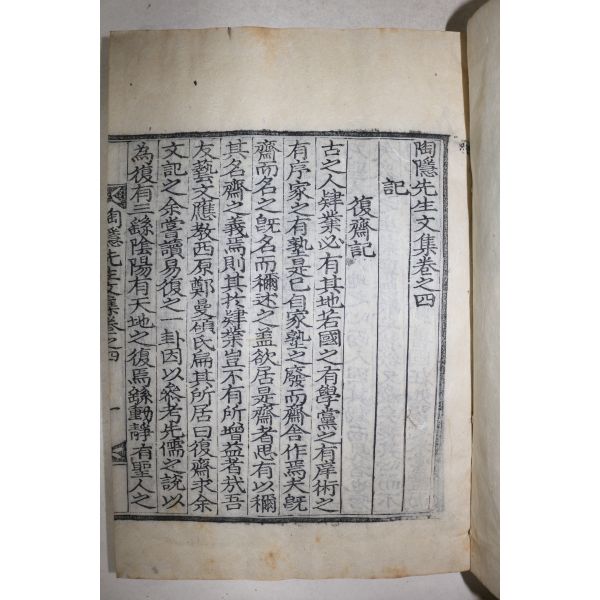 陶隱先生文集卷之四
記
復齋記
古之人肄業必有其地若國之有學黨之有庠術之
有序家之有塾是已自家塾之廢而齋舍作焉夫旣
齋而名之旣名而稱述之盖欲居是齋者思有以稱
其名齋之義焉則其於肄業豈不有所增益者哉吾
友藝文應敎西原鄭曼碩氏扁其所居曰復齋求余
文記之余甞讀易復之一卦因以參考先儒之說以
為復有三繇陰陽有天地之復焉繇動靜有聖人之
陶隱先生文集卷之四 一